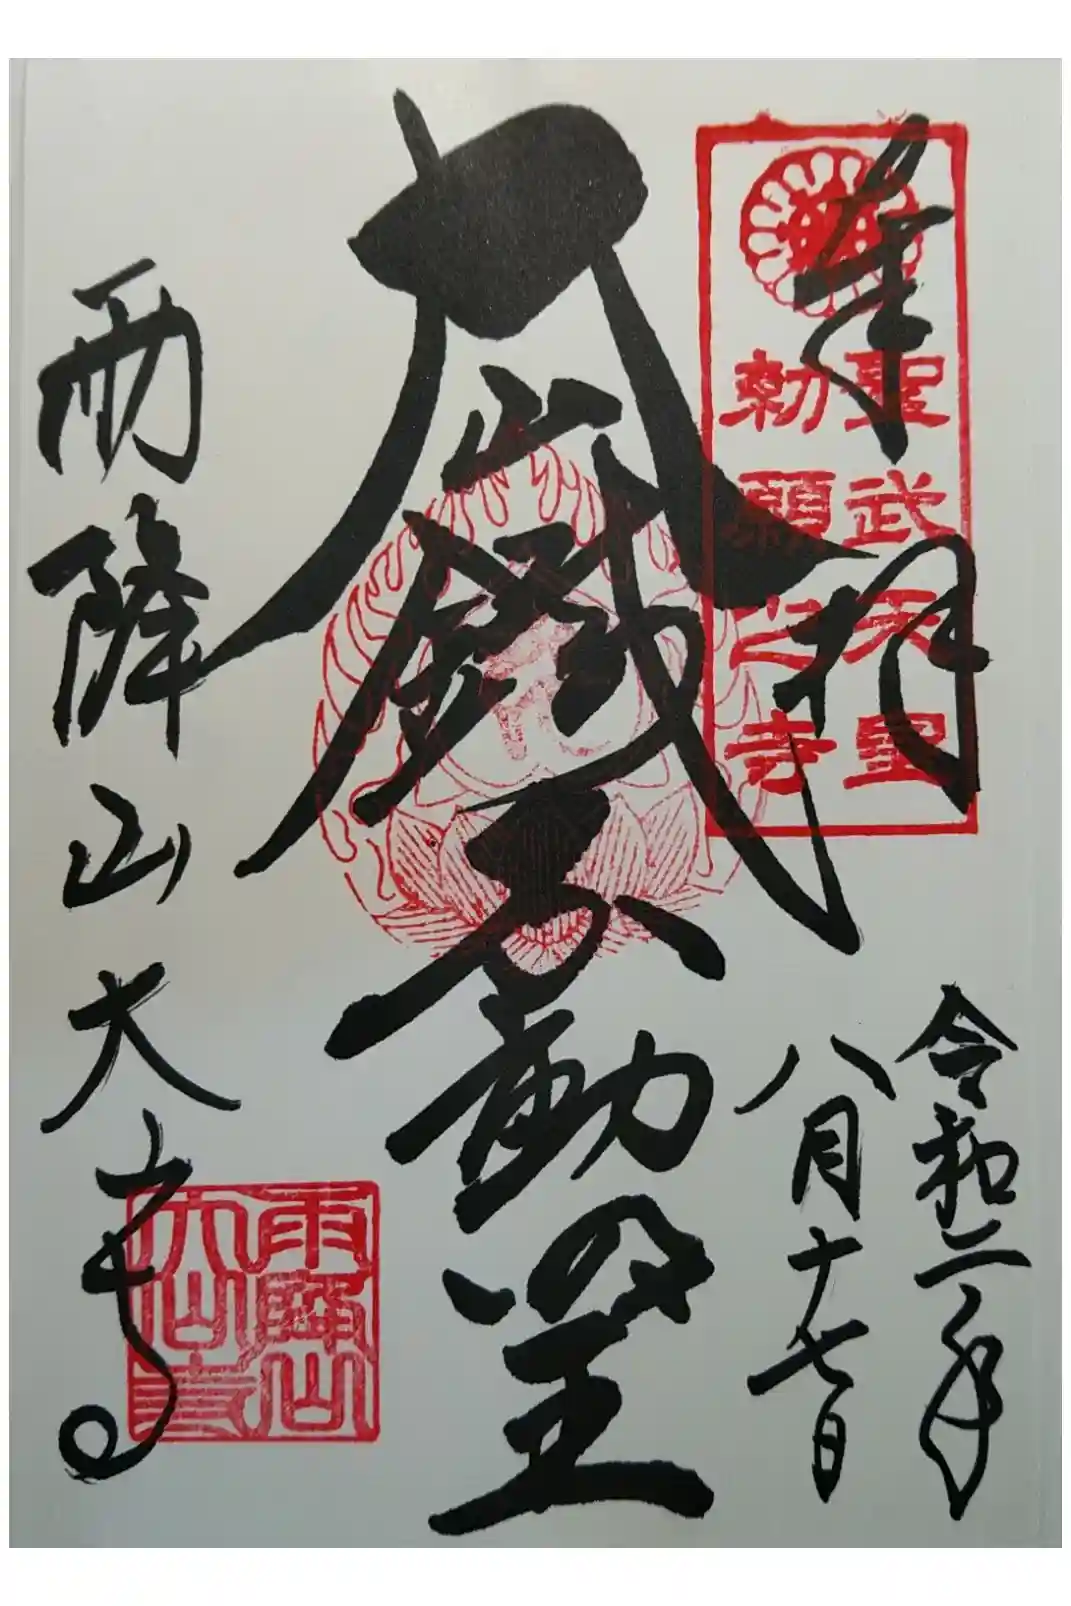 奉拝
聖武天皇
勅願之寺
令和二年
八月十七日
大山鐵不動堂
雨降山大山寺
雨降山
大山寺